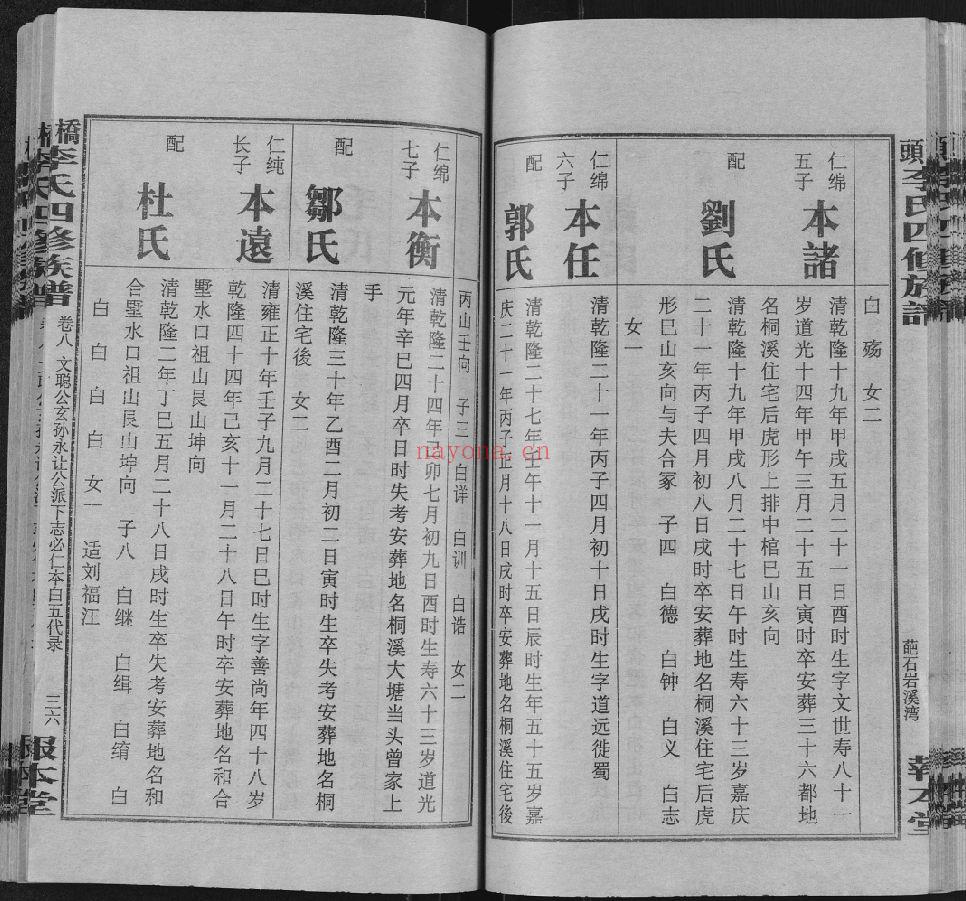 頭李氏四修族譜
葩石岩溪湾
白殇 女二
仁绵
五子
本諸
清乾隆十九年甲戌五月二十一日酉时生字文世寿八十一
岁道光十四年甲午三月二十五日寅时卒安葬三十六都地
名桐溪住宅后虎形上排中棺巳山亥向
配
劉氏
清乾隆十九年甲戌八月二十七日午时生寿六十三岁嘉庆
二十一年丙子四月初八日戌时卒安葬地名桐溪住宅后虎
形巳山亥向与夫合冢 子四 白德 白钟 白义 白志
女一
仁绵
六子
本任
清乾隆二十一年丙子四月初十日戌时生字道远徙蜀
配
郭氏
清乾隆二十七年壬午十一月十五日辰时生年五十五岁嘉
庆二十一年丙子正月十八日戌时卒安葬地名桐溪住宅後
丙山壬向 子三 白详 白训 白诰 女二
仁绵
七子
本衡
清乾隆二十四年己卯七月初九日酉时生寿六十三岁道光
元年辛巳四月卒日时失考安葬地名桐溪大塘当头曾家上
手
配
鄒氏
清乾隆三十年乙酉二月初二日寅时生卒失考安葬地名桐
溪住宅後 女二
仁纯
长子
本遠
清雍正十年壬子九月二十七日巳时生字善尚年四十八岁
乾隆四十四年己亥十一月二十八日午时卒安葬地名和合
墅水口祖山艮山坤向
配
杜氏
清乾隆二年丁巳五月二十八日戌时生卒失考安葬地名和
合墅水口祖山艮山坤向 子八 白继 白缉 白䋺 白
白 白 白 女一 适刘福江
橋李氏四修族譜
卷八 文聪公玄孙永让公派下志必仁本白五代录
三六
報本堂
nayona.cn